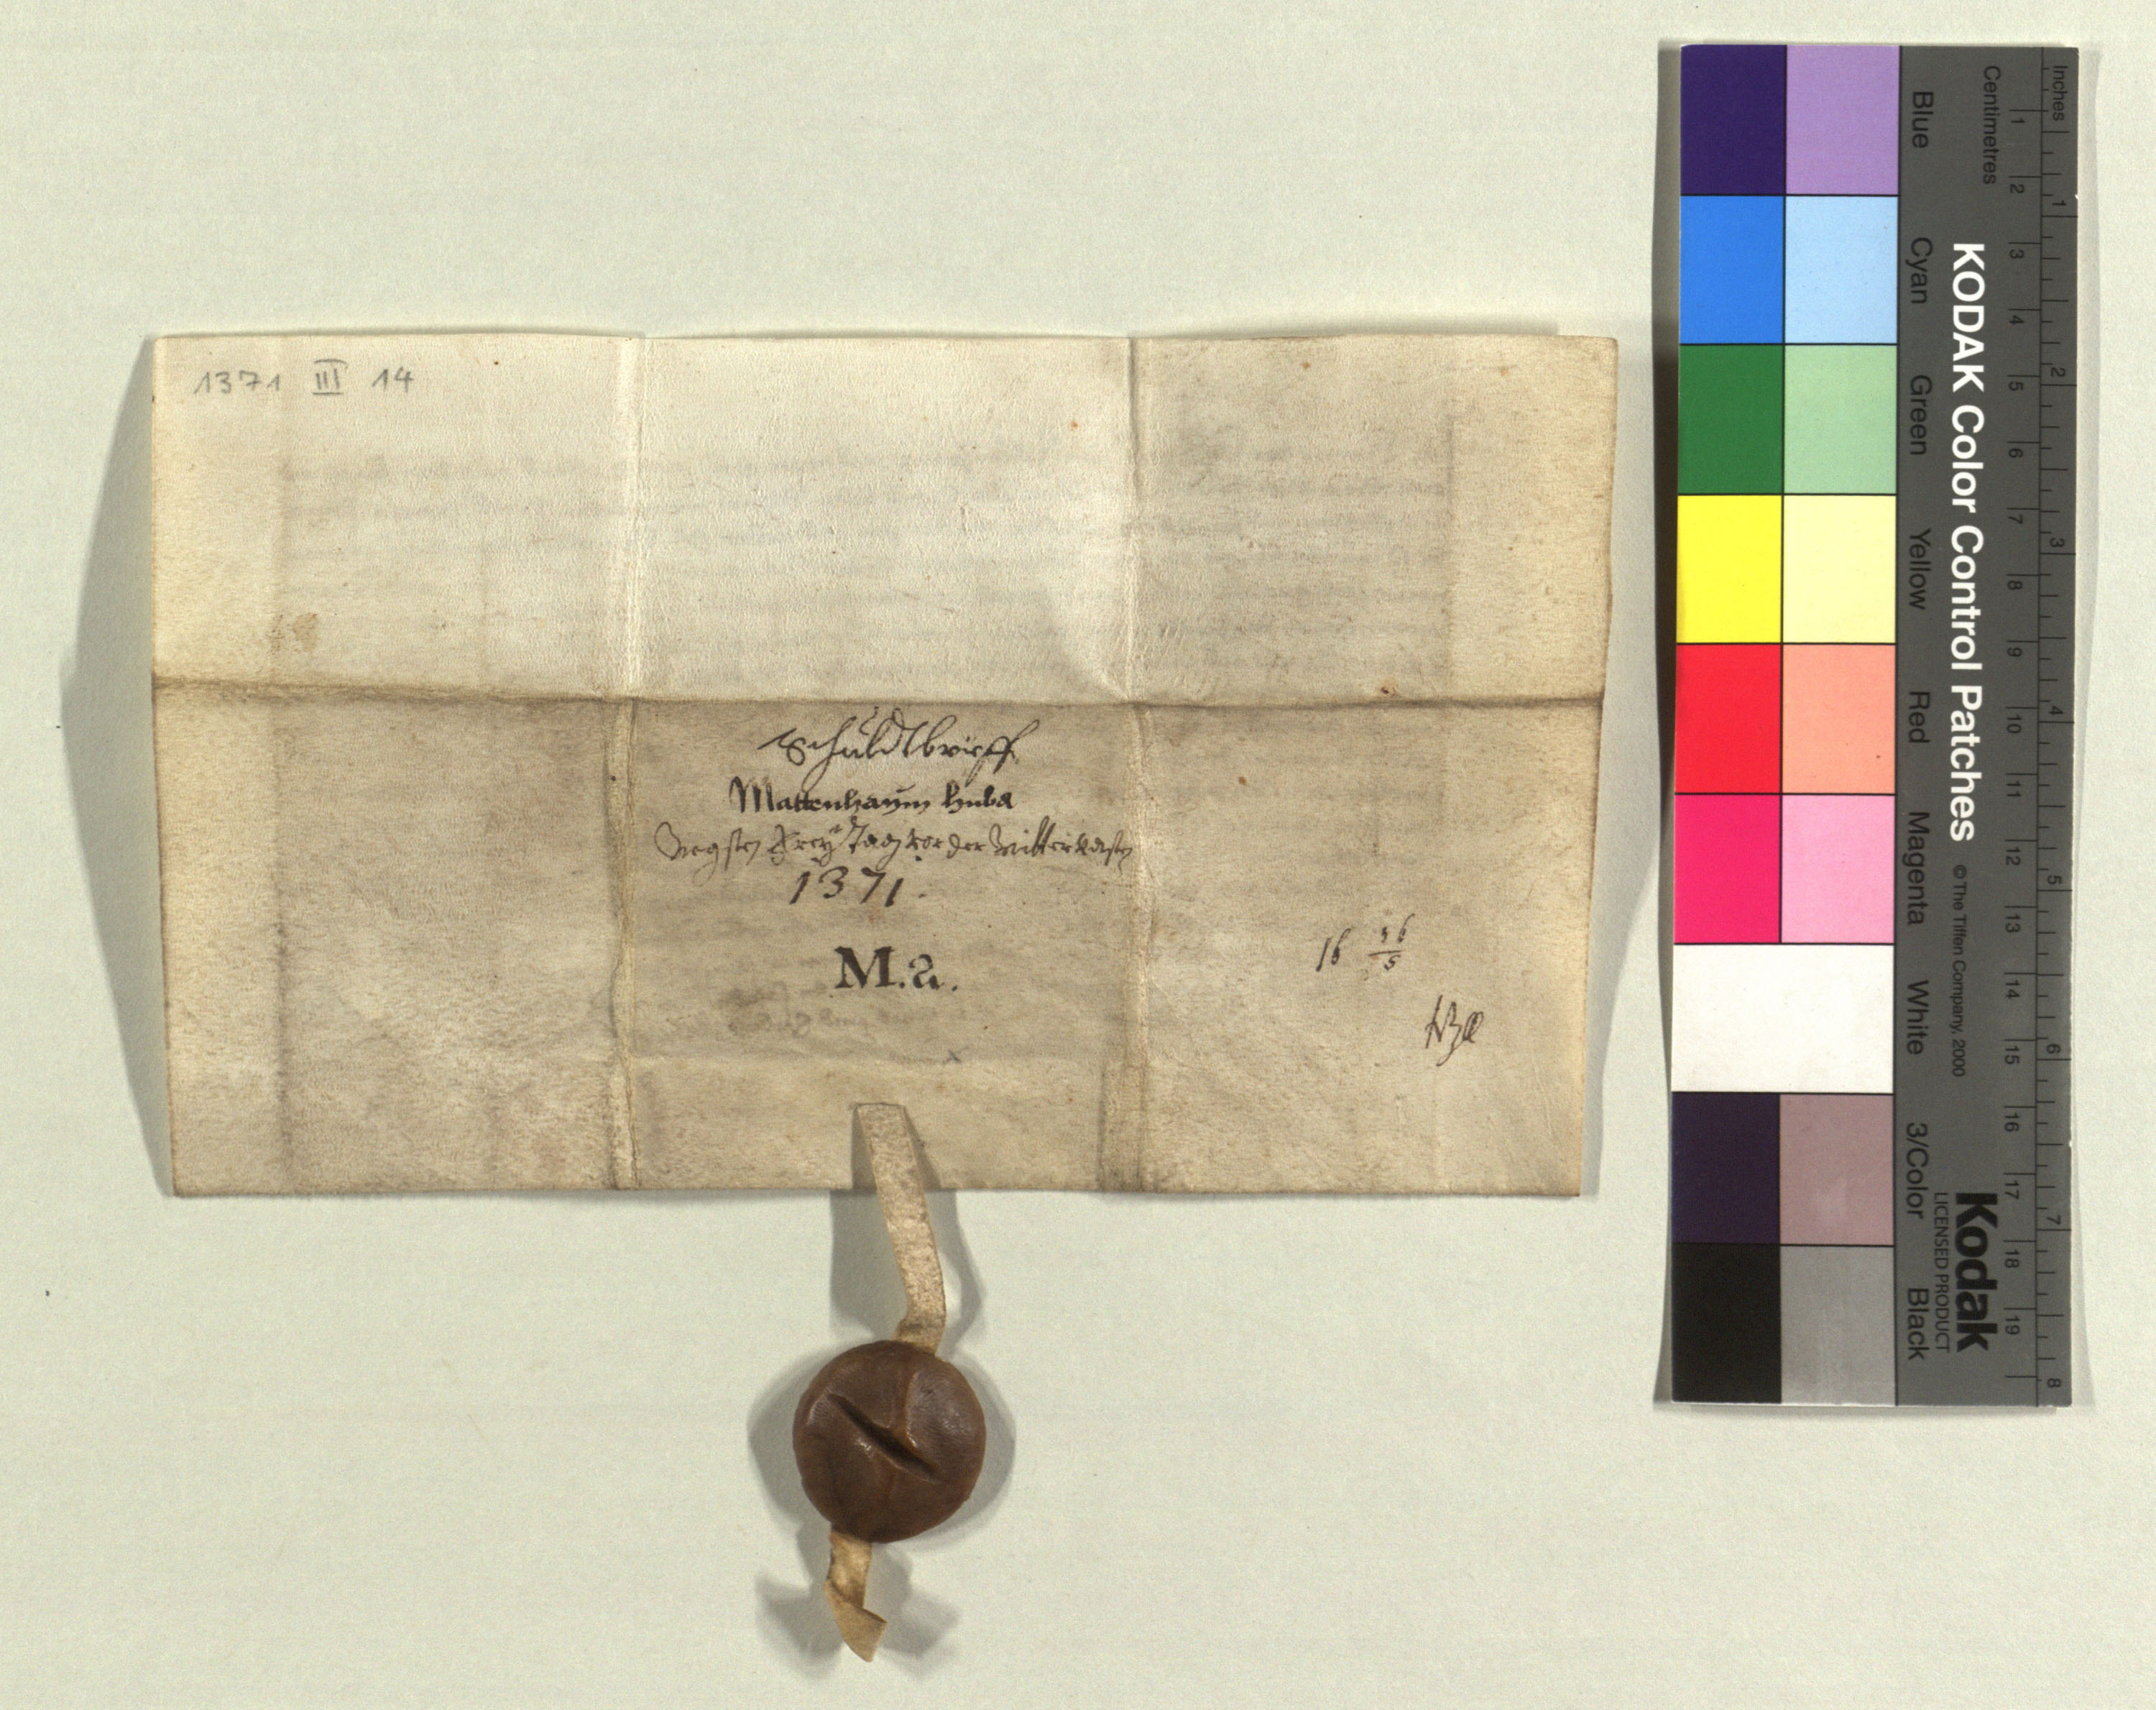 1371 III 14
Schuldtbrieff
Mattenhaym huba
Negsten Freÿ Tag vor der Mitterfasten
1371.
M.a.
16 36/5
KODAK Color Control Patches
© The Tiffen Company, 2000
Kodak
LICENSED PRODUCT
Inches
Centimetres
1 2 3 4 5 6 7 8
1 2 3 4 5 6 7 8 9 10 11 12 13 14 15 16 17 18 19
Blue Cyan Green Yellow Red Magenta White 3/Color Black